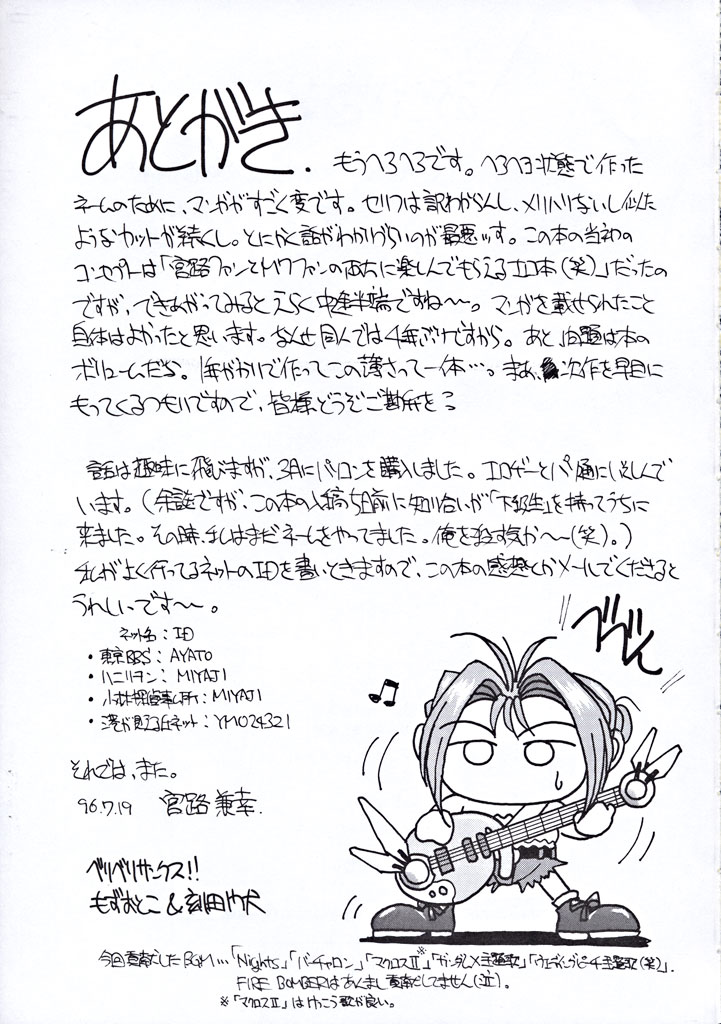 あとがき.
もうへろへろです。へろへろ状態で作った
ネームのために、マンガがすごく変です。セリフは訳わからんし、メリハリないし似た
ようなカットが続くし。とにかく話がわかりづらいのが最悪ッす。この本の当初の
コンセプトは「宮路ファンとMワファンの両方に楽しんでもらえるエロ本(笑)」だったの
ですが、できあがってみるとえらく中途半端ですね〜〜。マンガを載せられたこと
自体はよかったと思います。なんせ同人では4年ぶりですから。あと、問題は本の
ボリュームだな。1年がかりで作ってこの薄さって一体…。まあ、次作を早目に
もってくるつもりですので、皆様どうぞご勘弁を。
話は趣味に飛びますが、3月にパソコンを購入しました。エロゲーとパソ通にいそしんで
います。(余談ですが、この本の入稿5日前に知り合いが「下級生」を持ってうちに
来ました。その時、私はまだネームをやってました。俺を殺す気か〜〜(笑)。)
私がよく行ってるネットのIDを書いときますので、この本の感想とかメールでくださると
うれしいです〜〜。
ネット名:ID
・東京BBS:AYATO
・ハニリヲン:MIYAJI
・小林探偵事ム所:MIYAJI
・港が見える丘ネット:YMO24321
べべん
♪
それでは、また。
96.7.19 宮路兼幸.
ベリベリサンクス!!
もずおとこ&刻田門大
今回貢献したBGM…「Nights」「バーチャロン」「マクロスⅡ※」「ガンダムX主題歌」「ウェディングピーチ主題歌(笑)」.
FIRE BOMBERはあんまし貢献してません(泣).
※「マクロスⅡ」はけっこう歌が良い。